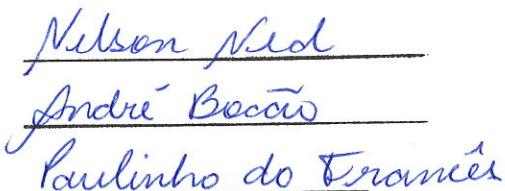 Nelson Ned
André Bocão
Paulinho do Francês